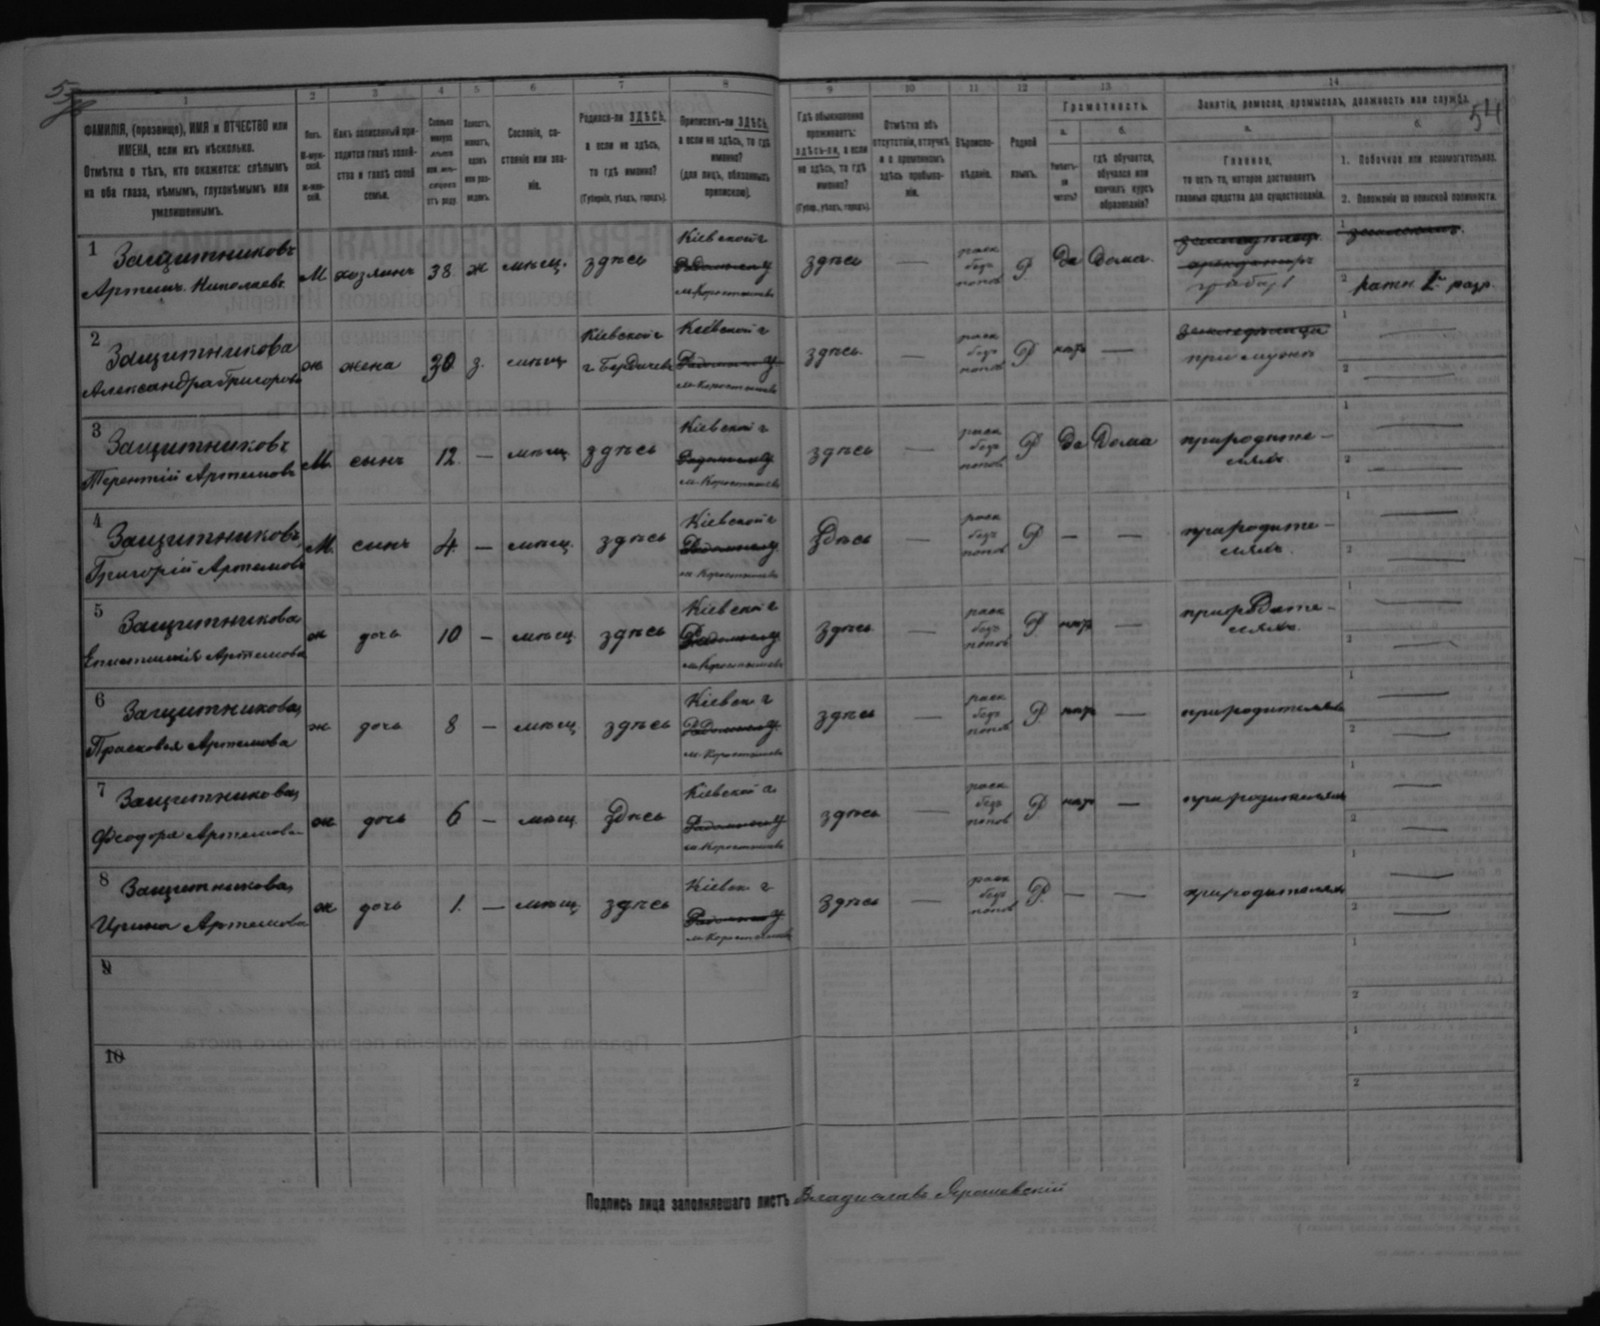 54
1 2 3 4 5 6 7 8 9 10 11 12 13 14
ФАМИЛІЯ, (прозвище), ИМЯ и ОТЧЕСТВО или
ИМЕНА, если ихъ нѣсколько.
Отмѣтка о тѣхъ, кто окажется: слѣпымъ
на оба глаза, нѣмымъ, глухонѣмымъ или
умалишеннымъ.
Полъ.
М-муж-
ской.
ж-жен-
скій.
Какъ записанный при-
ходится главѣ хозяй-
ства и главѣ своей
семьи.
Сколько
минуло
лѣтъ
или мѣ-
сяцевъ
отъ роду.
Холостъ,
женатъ,
вдовъ
или раз-
веденъ.
Сословіе, со-
стояніе или зва-
ніе.
Родился-ли ЗДѢСЬ,
а если не здѣсь,
то гдѣ именно?
(Губернія, уѣздъ, городъ).
Приписанъ-ли ЗДѢСЬ,
а если не здѣсь, то гдѣ
именно?
(для лицъ, обязанныхъ
припискою).
Гдѣ обыкновенно
проживаетъ:
здѣсь-ли, а если
не здѣсь, то гдѣ
именно?
(Губер., уѣздъ, городъ).
Отмѣтка объ
отсутствіи, отлучкѣ
и о временномъ
здѣсь пребыва-
ніи.
Вѣроиспо-
вѣданіе.
Родной
языкъ.
Грамотность.
а.
Умѣетъ-
ли
читать?
б.
гдѣ обучается,
обучался или
кончилъ курсъ
образованія?
Занятіе, ремесло, промыселъ, должность или служба.
а.
Главное,
то есть то, которое доставляетъ
главныя средства для существованія.
б.
1. Побочное или вспомогательное.
2. Положеніе по воинской повинности.
1 Защитниковъ М хозяинъ 38 ж мѣщ. здѣсь Кіевской г здѣсь — раск Р Да Дома
Артемъ Николаевъ м. Коростышевъ безъ попов 2 ратн. 2 разр.
2 Защитникова ж жена 30 з. мѣщ Кіевской г Кіевской г здѣсь — раск Р нѣтъ —
Александра Григорова г. Бердичевъ м. Коростышевъ безъ попов при мужѣ
3 Защитниковъ М. сынъ 12 — мѣщ здѣсь Кіевской г здѣсь — раск Р Да Дома при родите-
Терентій Артемовъ м. Коростышевъ безъ попов ляхъ
4 Защитниковъ М. сынъ 4 — мѣщ. здѣсь Кіевской г Здѣсь — раск Р — — при родите-
Григорій Артемовъ м. Коростышевъ безъ попов ляхъ
5 Защитникова ж дочь 10 — мѣщ здѣсь Кіевской г здѣсь — раск Р нѣтъ — при родите-
Епистимія Артемова м. Коростышевъ безъ попов ляхъ
6 Защитникова ж дочь 8 — мѣщ здѣсь Кіевск. г здѣсь — раск Р нѣтъ — при родителяхъ
Прасковья Артемова м. Коростышевъ безъ попов
7 Защитникова ж дочь 6 — мѣщ Здѣсь Кіевской г. здѣсь — раск Р нѣтъ — при родителяхъ
Феодора Артемова м. Коростышевъ безъ попов
8 Защитникова ж дочь 1. — мѣщ здѣсь Кіевск. г здѣсь — раск Р. — — при родителяхъ
Ирина Артемова м. Коростышевъ безъ попов
9
10
Подпись лица заполнявшаго листъ Владиславъ Ярошевскій